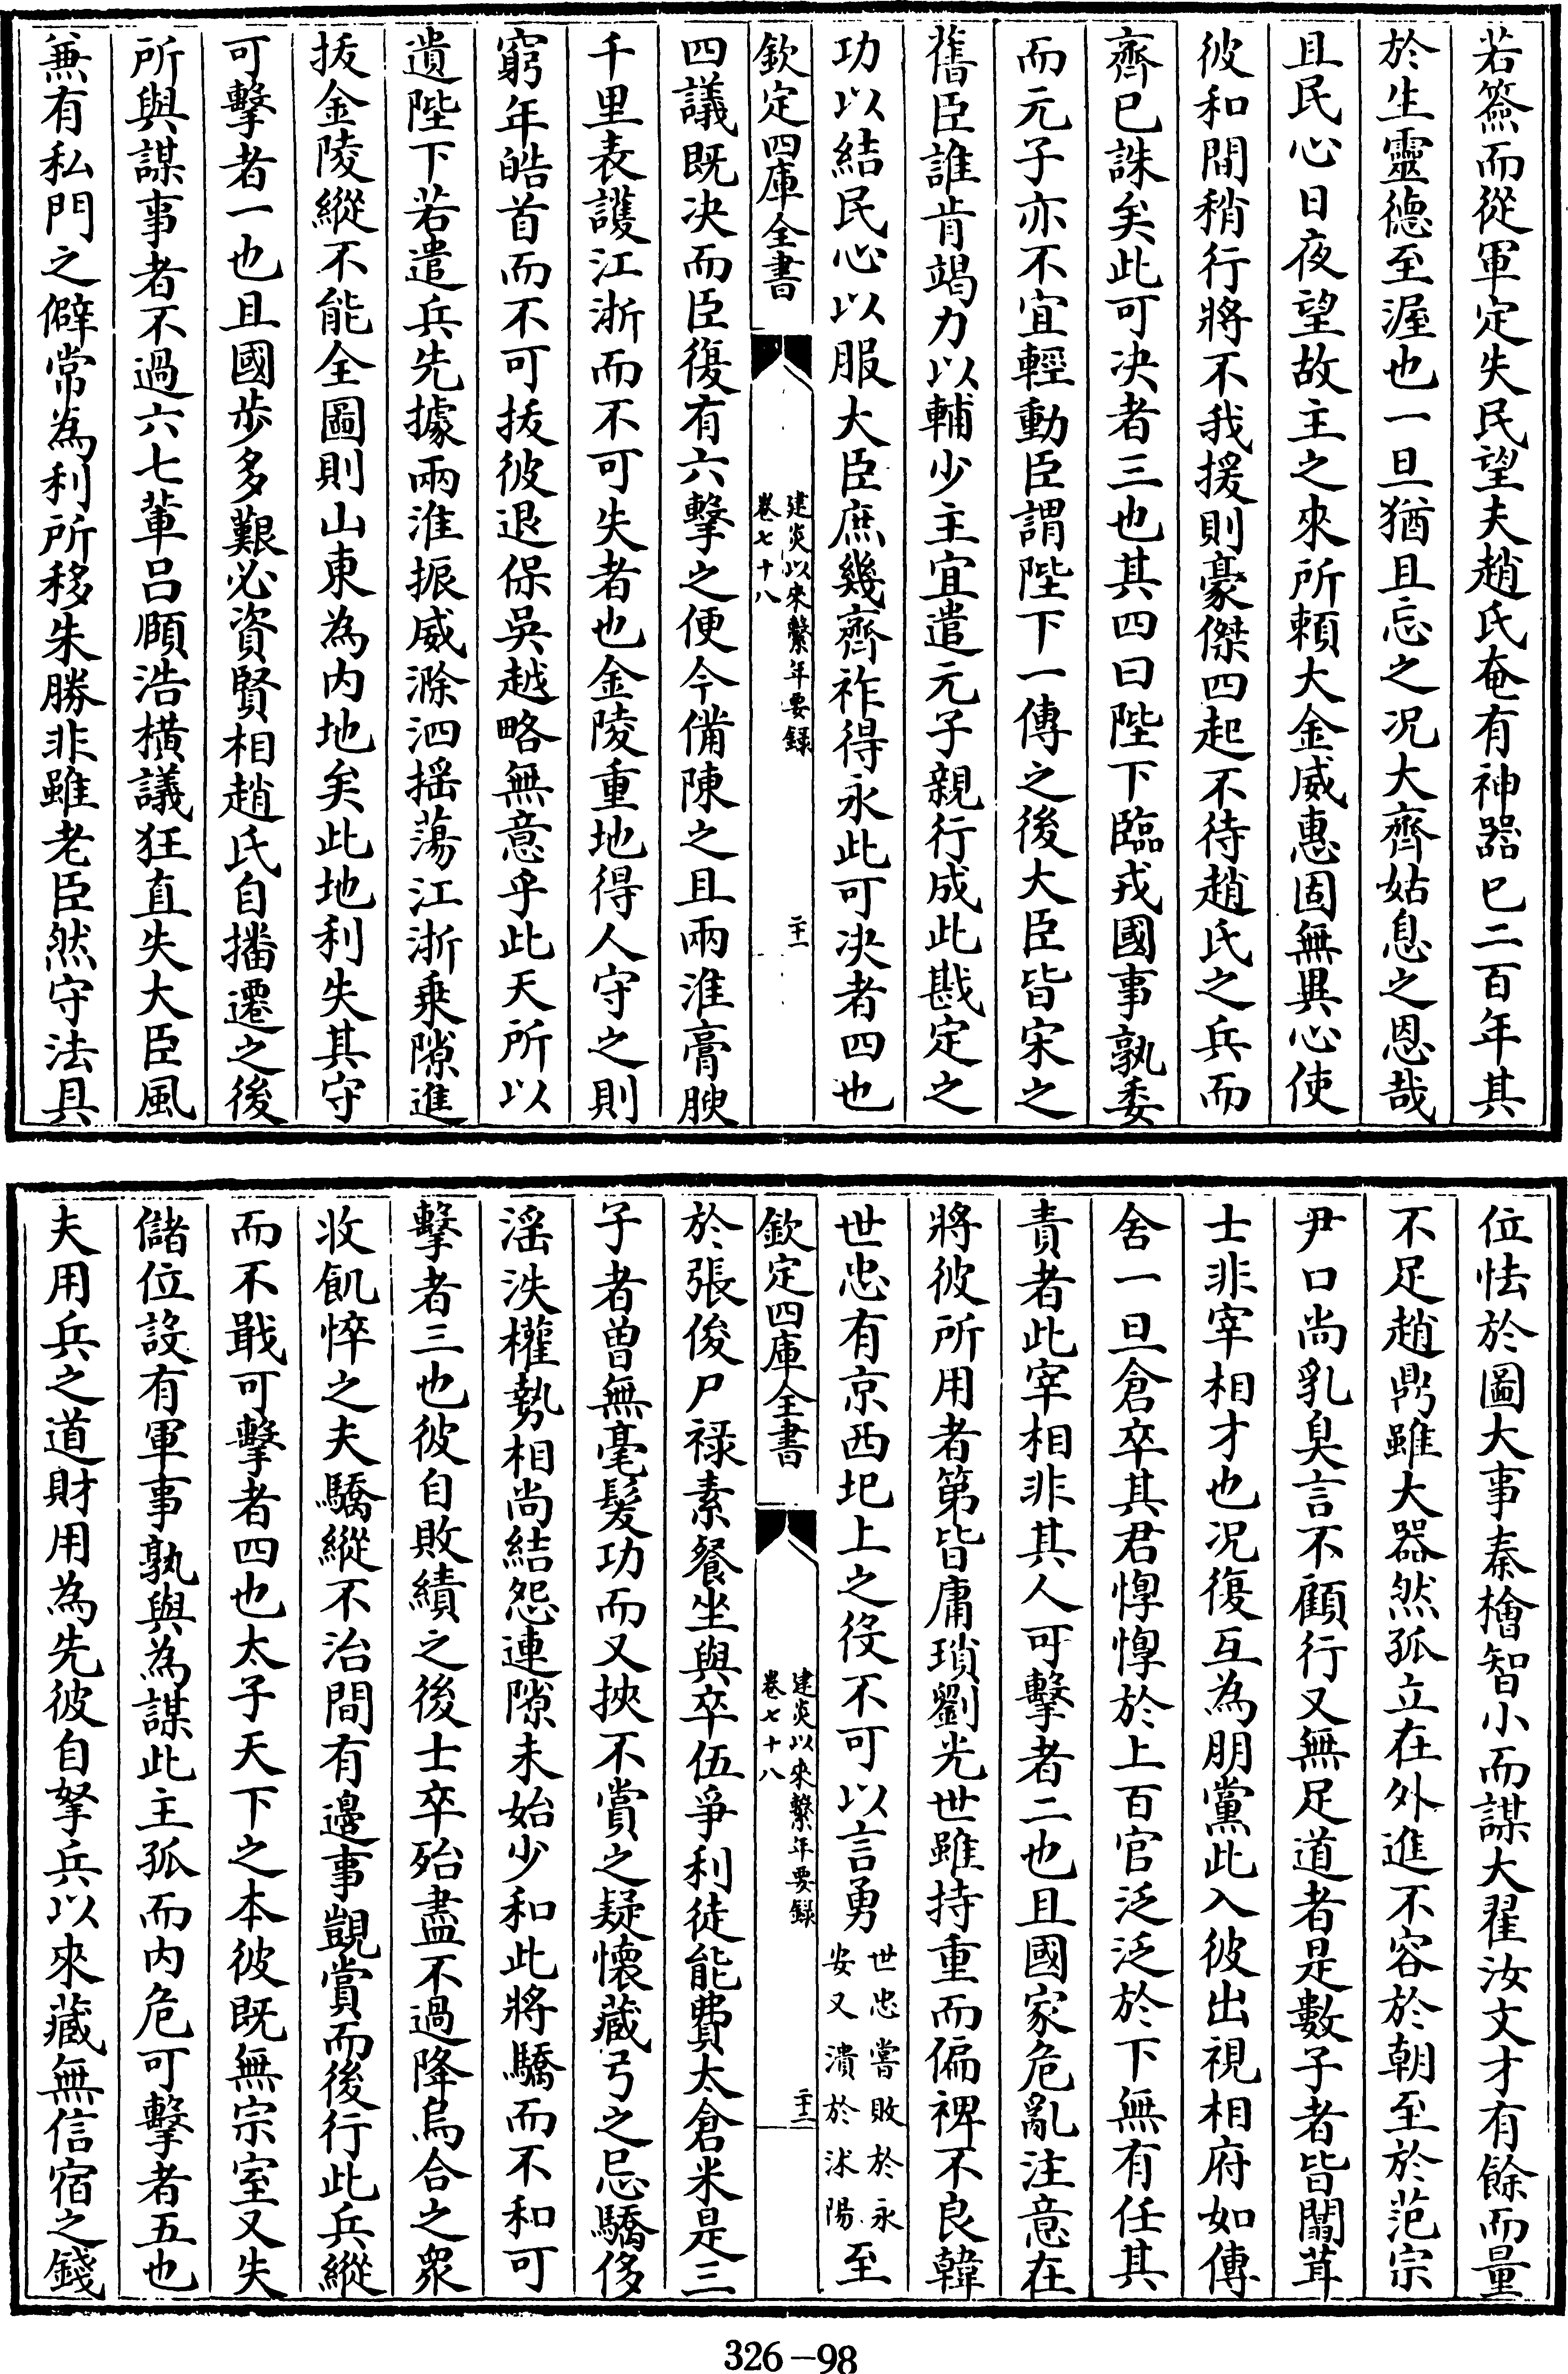 若簽而從軍定失民望夫趙氏奄有神器已二百年其
於生靈德至渥也一旦猶且忘之况大齊姑息之恩哉
且民心日夜望故主之來所頼大金威惠固無異心使
彼和間稍行將不我援則豪傑四起不待趙氏之兵而
齊已誅矣此可决者三也其四曰陛下臨戎國事孰委
而元子亦不宜輕動臣謂陛下一傳之後大臣皆宋之
舊臣誰肯竭力以輔少主宜遣元子親行成此戡定之
功以結民心以服大臣庶幾齊祚得永此可决者四也
欽定四庫全書
建炎以來繫年要録
卷七十八
二十一
四議既决而臣復有六擊之便今備陳之且兩淮膏腴
千里表䕶江浙而不可失者也金陵重地得人守之則
窮年皓首而不可拔彼退保吳越略無意乎此天所以
遺陛下若遣兵先據兩淮振威滁泗揺蕩江浙乗隙進
拔金陵縱不能全圖則山東為内地矣此地利失其守
可擊者一也且國歩多艱必資賢相趙氏自播遷之後
所與謀事者不過六七軰吕頤浩橫議狂直失大臣風
兼有私門之僻常為利所移朱勝非雖老臣然守法具
位怯於圖大事秦檜智小而謀大翟汝文才有餘而量
不足趙鼎雖大器然孤立在外進不容於朝至於范宗
尹口尚乳臭言不顧行又無足道者是數子者皆闒茸
士非宰相才也况復互為朋黨此入彼出視相府如傳
舍一旦倉卒其君惸惸於上百官泛泛於下無有任其
責者此宰相非其人可擊者二也且國家危亂注意在
將彼所用者第皆庸瑣劉光世雖持重而偏裨不良韓
世忠有京西圯上之役不可以言勇
世忠嘗敗於永
安又潰於沭陽
至
欽定四庫全書
建炎以來繫年要録
卷七十八
二十二
於張俊尸禄素餐坐與卒伍爭利徒能費太倉米是三
子者曽無毫髮功而又挾不賞之疑懷藏弓之忌驕侈
滛泆權勢相尚結怨連隙未始少和此將驕而不和可
擊者三也彼自敗績之後士卒殆盡不過降烏合之衆
收飢悴之夫驕縱不治間有邊事覬賞而後行此兵縱
而不戢可擊者四也太子天下之本彼既無宗室又失
儲位設有軍事孰與為謀此主孤而内危可擊者五也
夫用兵之道財用為先彼自拏兵以來藏無信宿之錢
326-98